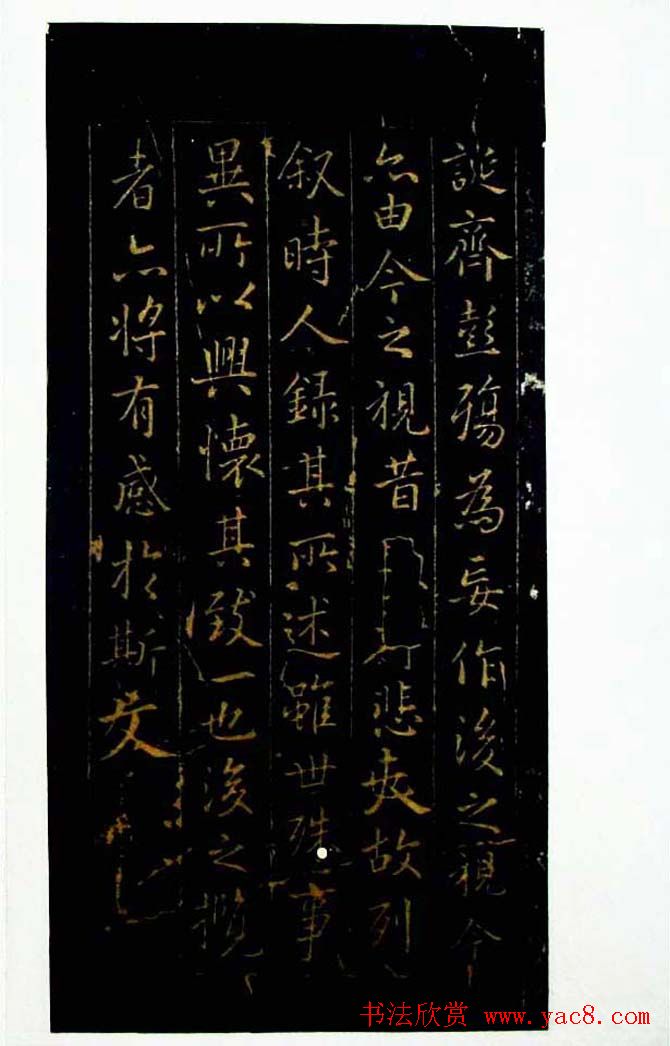 誕齊彭殤為妄作後之視今
亦由今之視昔悲夫故列
叙時人録其所述雖世殊事
異所以興懷其致一也後之攬
者亦将有感於斯文
书法欣赏 www.yac8.com